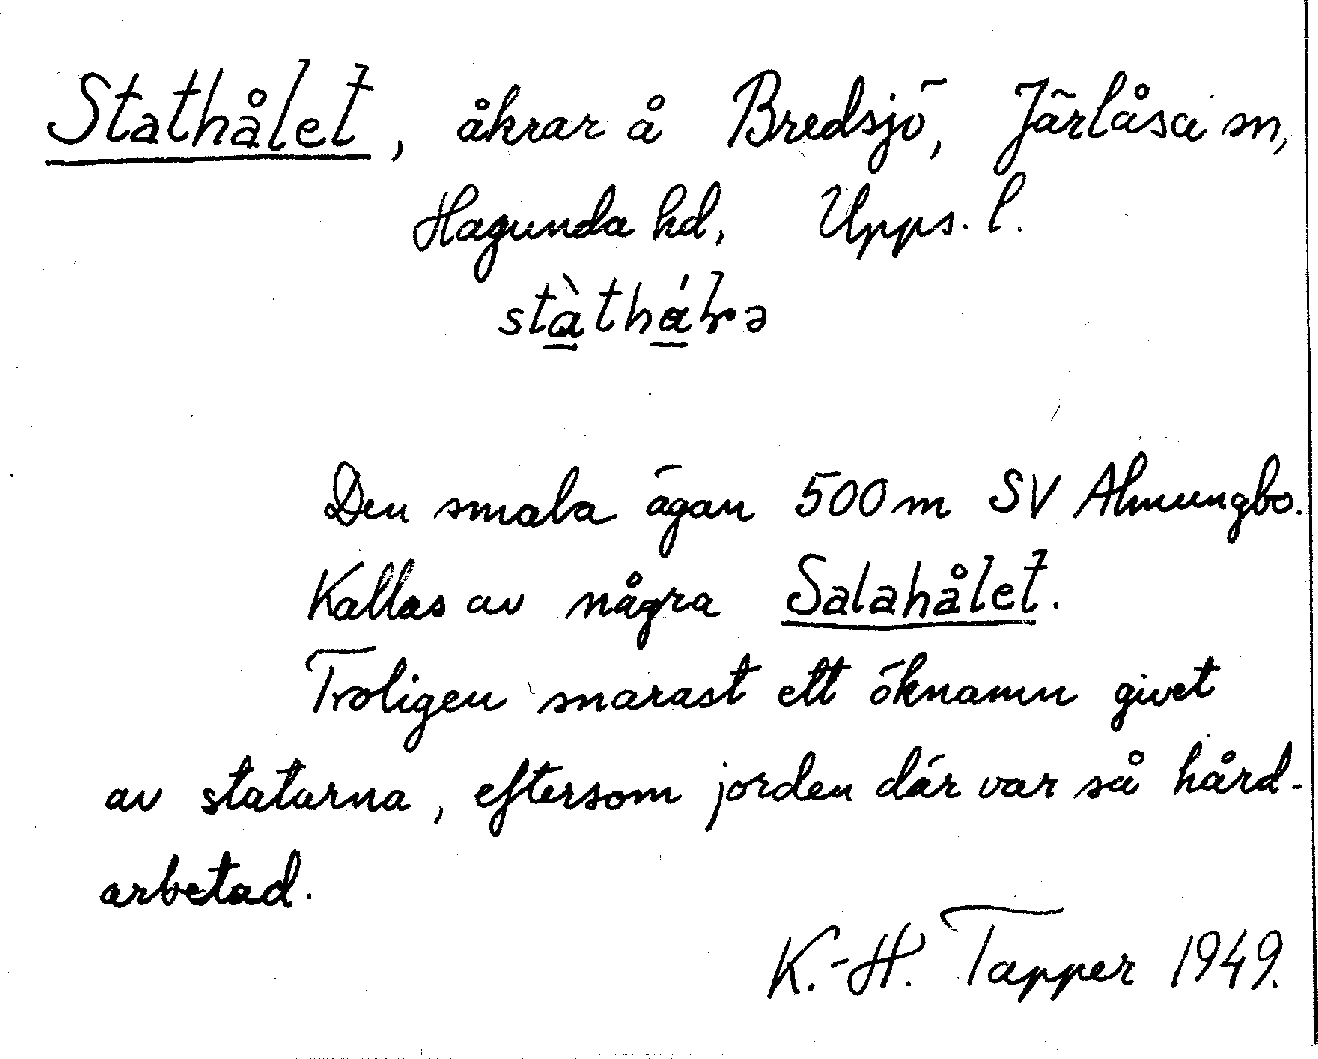 Stathålet, åkrar å Bredsjö, Järlåsa sn,
Hagunda hd, Upps. l.
Den smala ägan 500 m SV Almungbo.
Kallas av några Salahålet.
Troligen snarast ett öknamn givet
av statarna, eftersom jorden där var så hård-
arbetad.
K.-H. Tapper 1949.